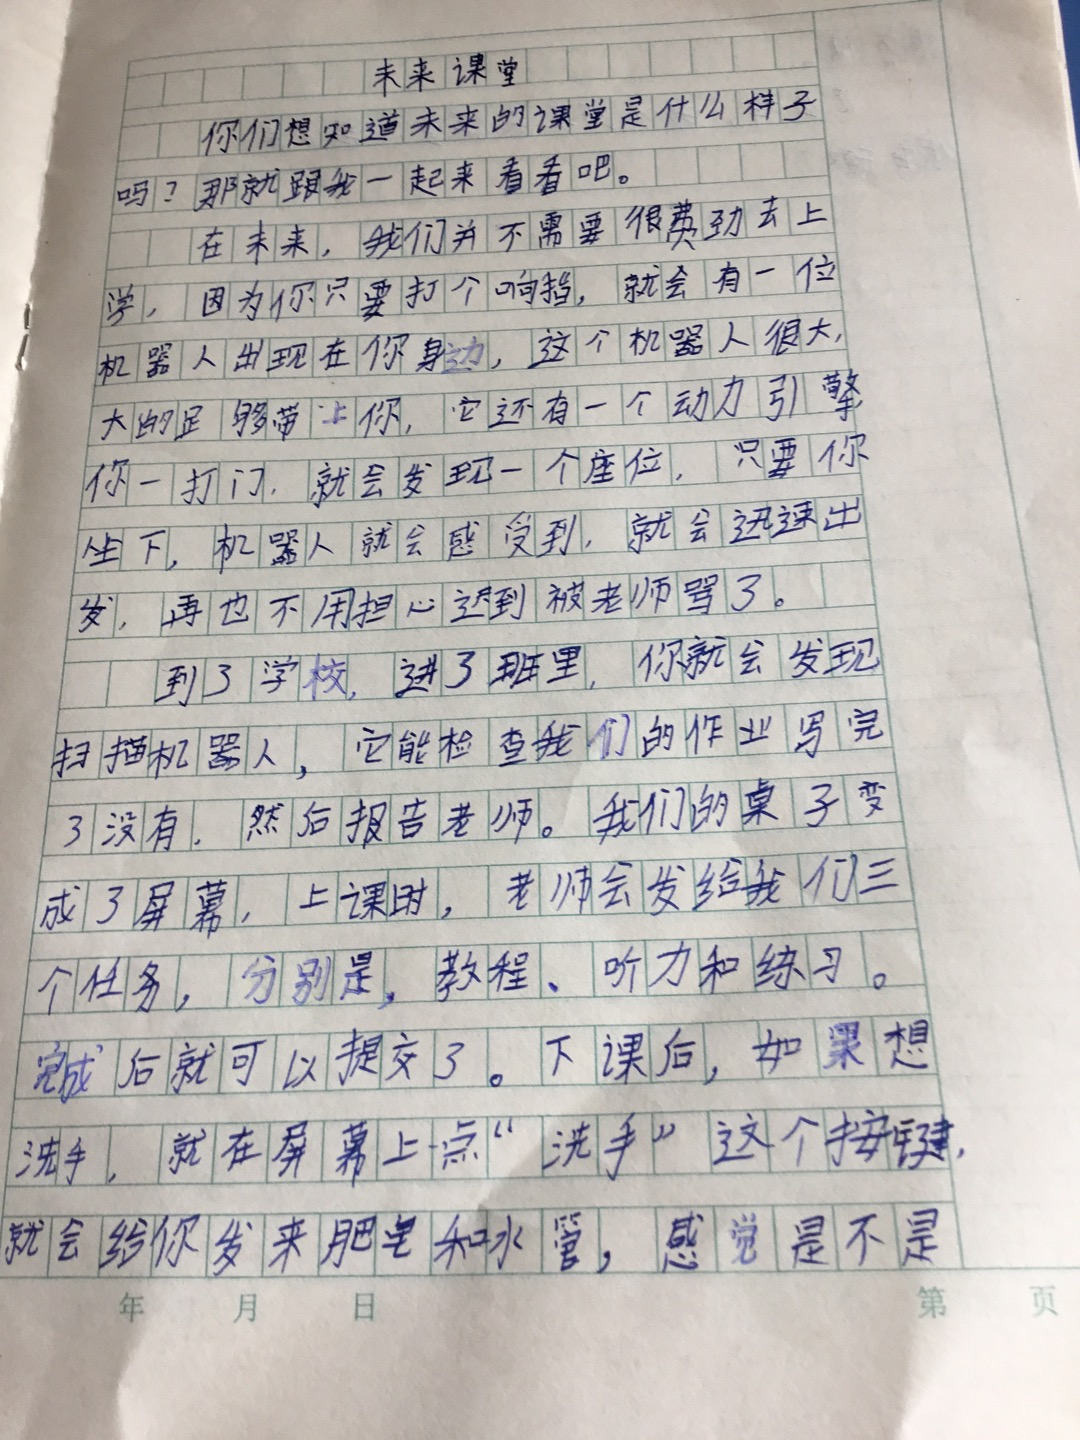 未来课堂
你们想知道未来的课堂是什么样子
吗？那就跟我一起来看看吧。
在未来，我们并不需要很费劲去上
学，因为你只要打个响指，就会有一位
机器人出现在你身边，这个机器人很大，
大的足够带上你，它还有一个动力引擎
你一打门，就会发现一个座位，只要你
坐下，机器人就会感受到，就会迅速出
发，再也不用担心迟到被老师骂了。
到了学校，进了班里，你就会发现
扫描机器人，它能检查我们的作业写完
了没有，然后报告老师。我们的桌子变
成了屏幕，上课时，老师会发给我们三
个任务，分别是，教程、听力和练习。
完成后就可以提交了。下课后，如果想
洗手，就在屏幕上点“洗手”这个按键，
就会给你发来肥皂和水管，感觉是不是
年 月 日 第 页